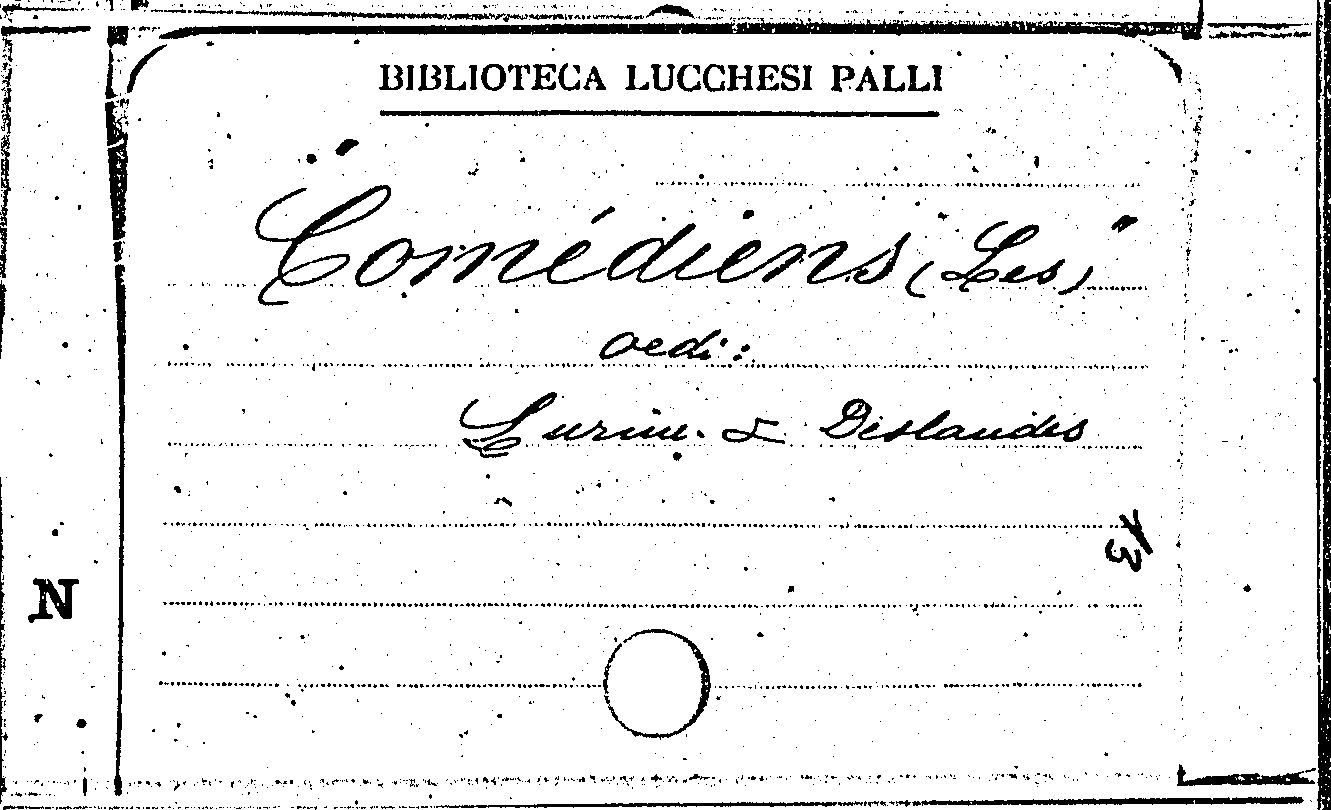 BIBLIOTECA LUCCHESI PALLI
"Comédiens (Les)"
vedi:
Lurine & Deslandes
13
N